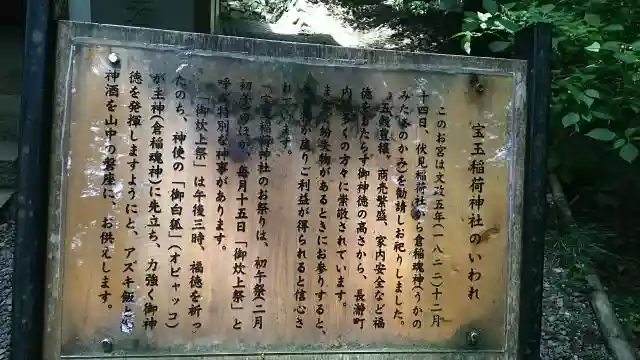 宝玉稲荷神社のいわれ
このお宮は文政五年(一八二二)十二月
十四日、伏見稲荷社から倉稲魂神(うかの
みたまのかみ)を勧請しお祀りしました。
五穀豊穣、商売繁盛、家内安全など福
徳をもたらす御神徳の高さから、長瀞町
内外多くの方々に崇敬されています。
また、紛失物があるときにお参りすると、
が戻りご利益が得られると信心さ
れています。
宝玉稲荷神社のお祭りは、初午祭(二月
初午)のほか、毎月十五日「御炊上祭」と
呼ぶ特別な神事があります。
「御炊上祭」は午後三時、福徳を祈っ
たのち、神使の「御白狐」(オビャッコ)
が主神(倉稲魂神)に先立ち、力強く御神
徳を発揮しますようにと、アズキ飯と御
神酒を山中の磐座に、お供えします。